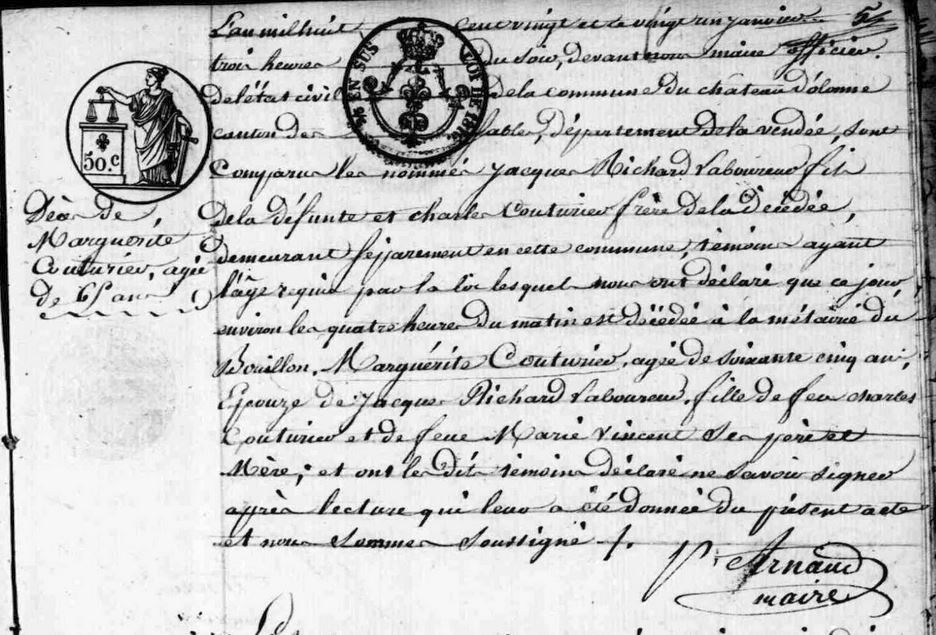 L'an mil huit cent vingt et le vingt un janvier
trois heures du soir, devant nous maire officier
de l'état civil de la commune du château d'olonne
canton des sables, département de la vendée, sont
Comparus les nommés Jacques Richard laboureur fils
de la défunte et charles Couturier frère de la décédée,
demeurant séparement en cette commune, témoins ayant
l'âge requis par la loi lesquels nous ont déclaré que ce jour,
environ les quatre heures du matin est décédée à la métairie du
Bouillon, Marguérite Couturier, agée de soixante cinq ans,
Epouze de Jacques Richard laboureur, fille de feu charles
Couturier et de feue Marie Vincent ses père et
Mère; et ont les dits témoins déclaré ne savoir signer
après lecture qui leur a été donnée du présent acte
et nous sommes soussigné
Arnaud
maire
5
EN SUS
LOI DE 1816
50.c
Décès de
Marguérite
Couturier, agée
de 65 ans